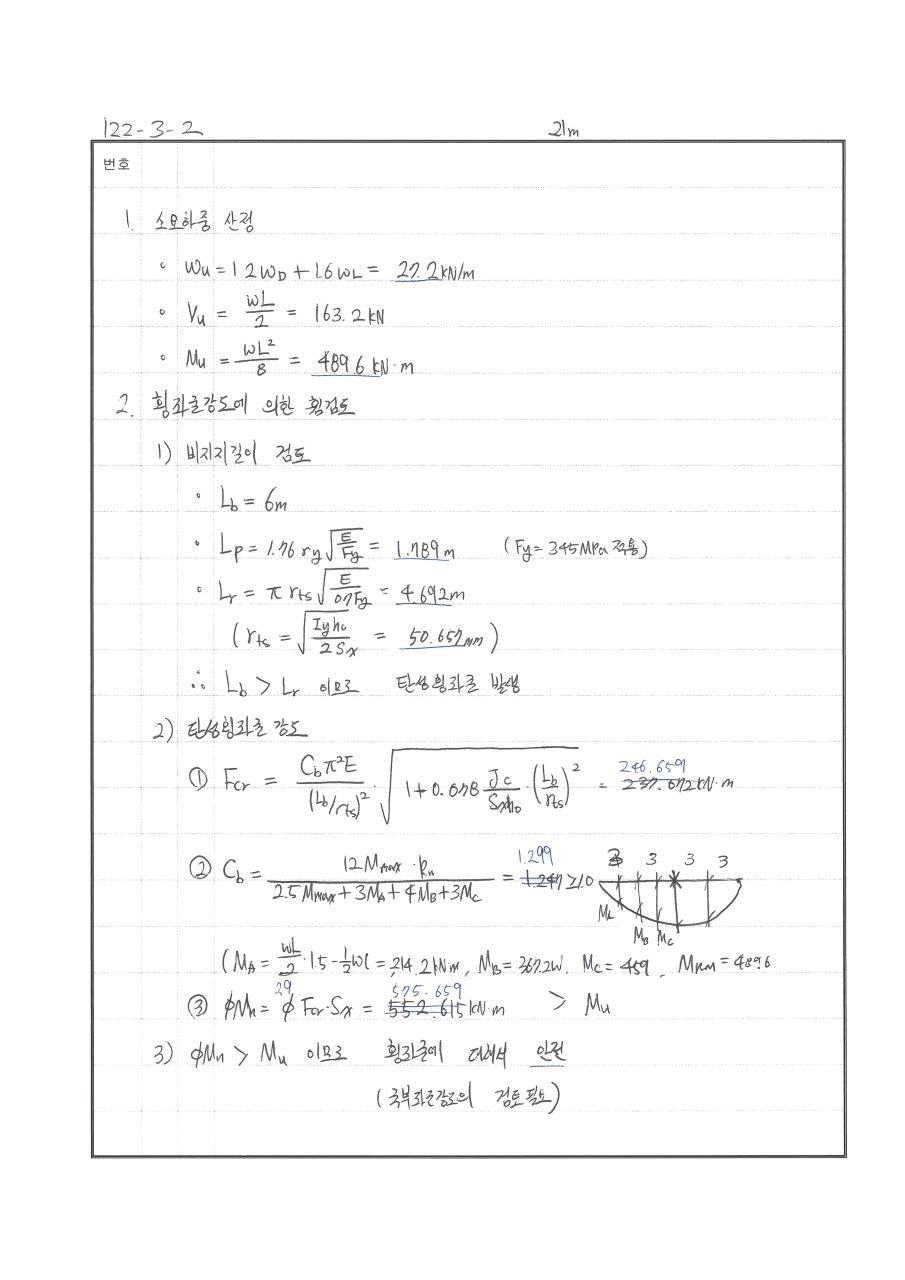 122-3-2 21m
번호
1. 소요하중 산정
∘ Wu = 1.2WD + 1.6WL = 27.2kN/m
∘ Vu = wL/2 = 163.2kN
∘ Mu = wL²/8 = 489.6 kN·m
2. 횡좌굴강도에 의한 휨검토
1) 비지지길이 검토
∘ Lb = 6m
∘ Lp = 1.76 ry √(E/Fy) = 1.789m (Fy = 345MPa 적용)
∘ Lr = π rts √(E/0.7Fy) = 4.692m
(rts = √(Iyho/2Sx) = 50.657mm)
∴ Lb > Lr 이므로 탄성횡좌굴 발생
2) 탄성횡좌굴 강도
① Fcr = Cbπ²E/(Lb/rts)² · √(1+0.078 Jc/Sxho · (Lb/rts)²) = 246.659 237.072kN·m
② Cb = 12Mmax · Rm/(2.5Mmax + 3MA + 4MB + 3MC) = 1.299 1.247 ≥ 1.0 3 3 3
MA MB MC
(MA = wL/2 · 1.5 - 1/2wl = 214.2kNm, MB = 367.2, MC = 459, Mmax = 489.6
③ ϕMn = ϕ Fcr·Sx = 575.659 552.615kN·m > Mu
3) ϕMn > Mu 이므로 횡좌굴에 대해서 안전
(국부좌굴강도의 검토필요)